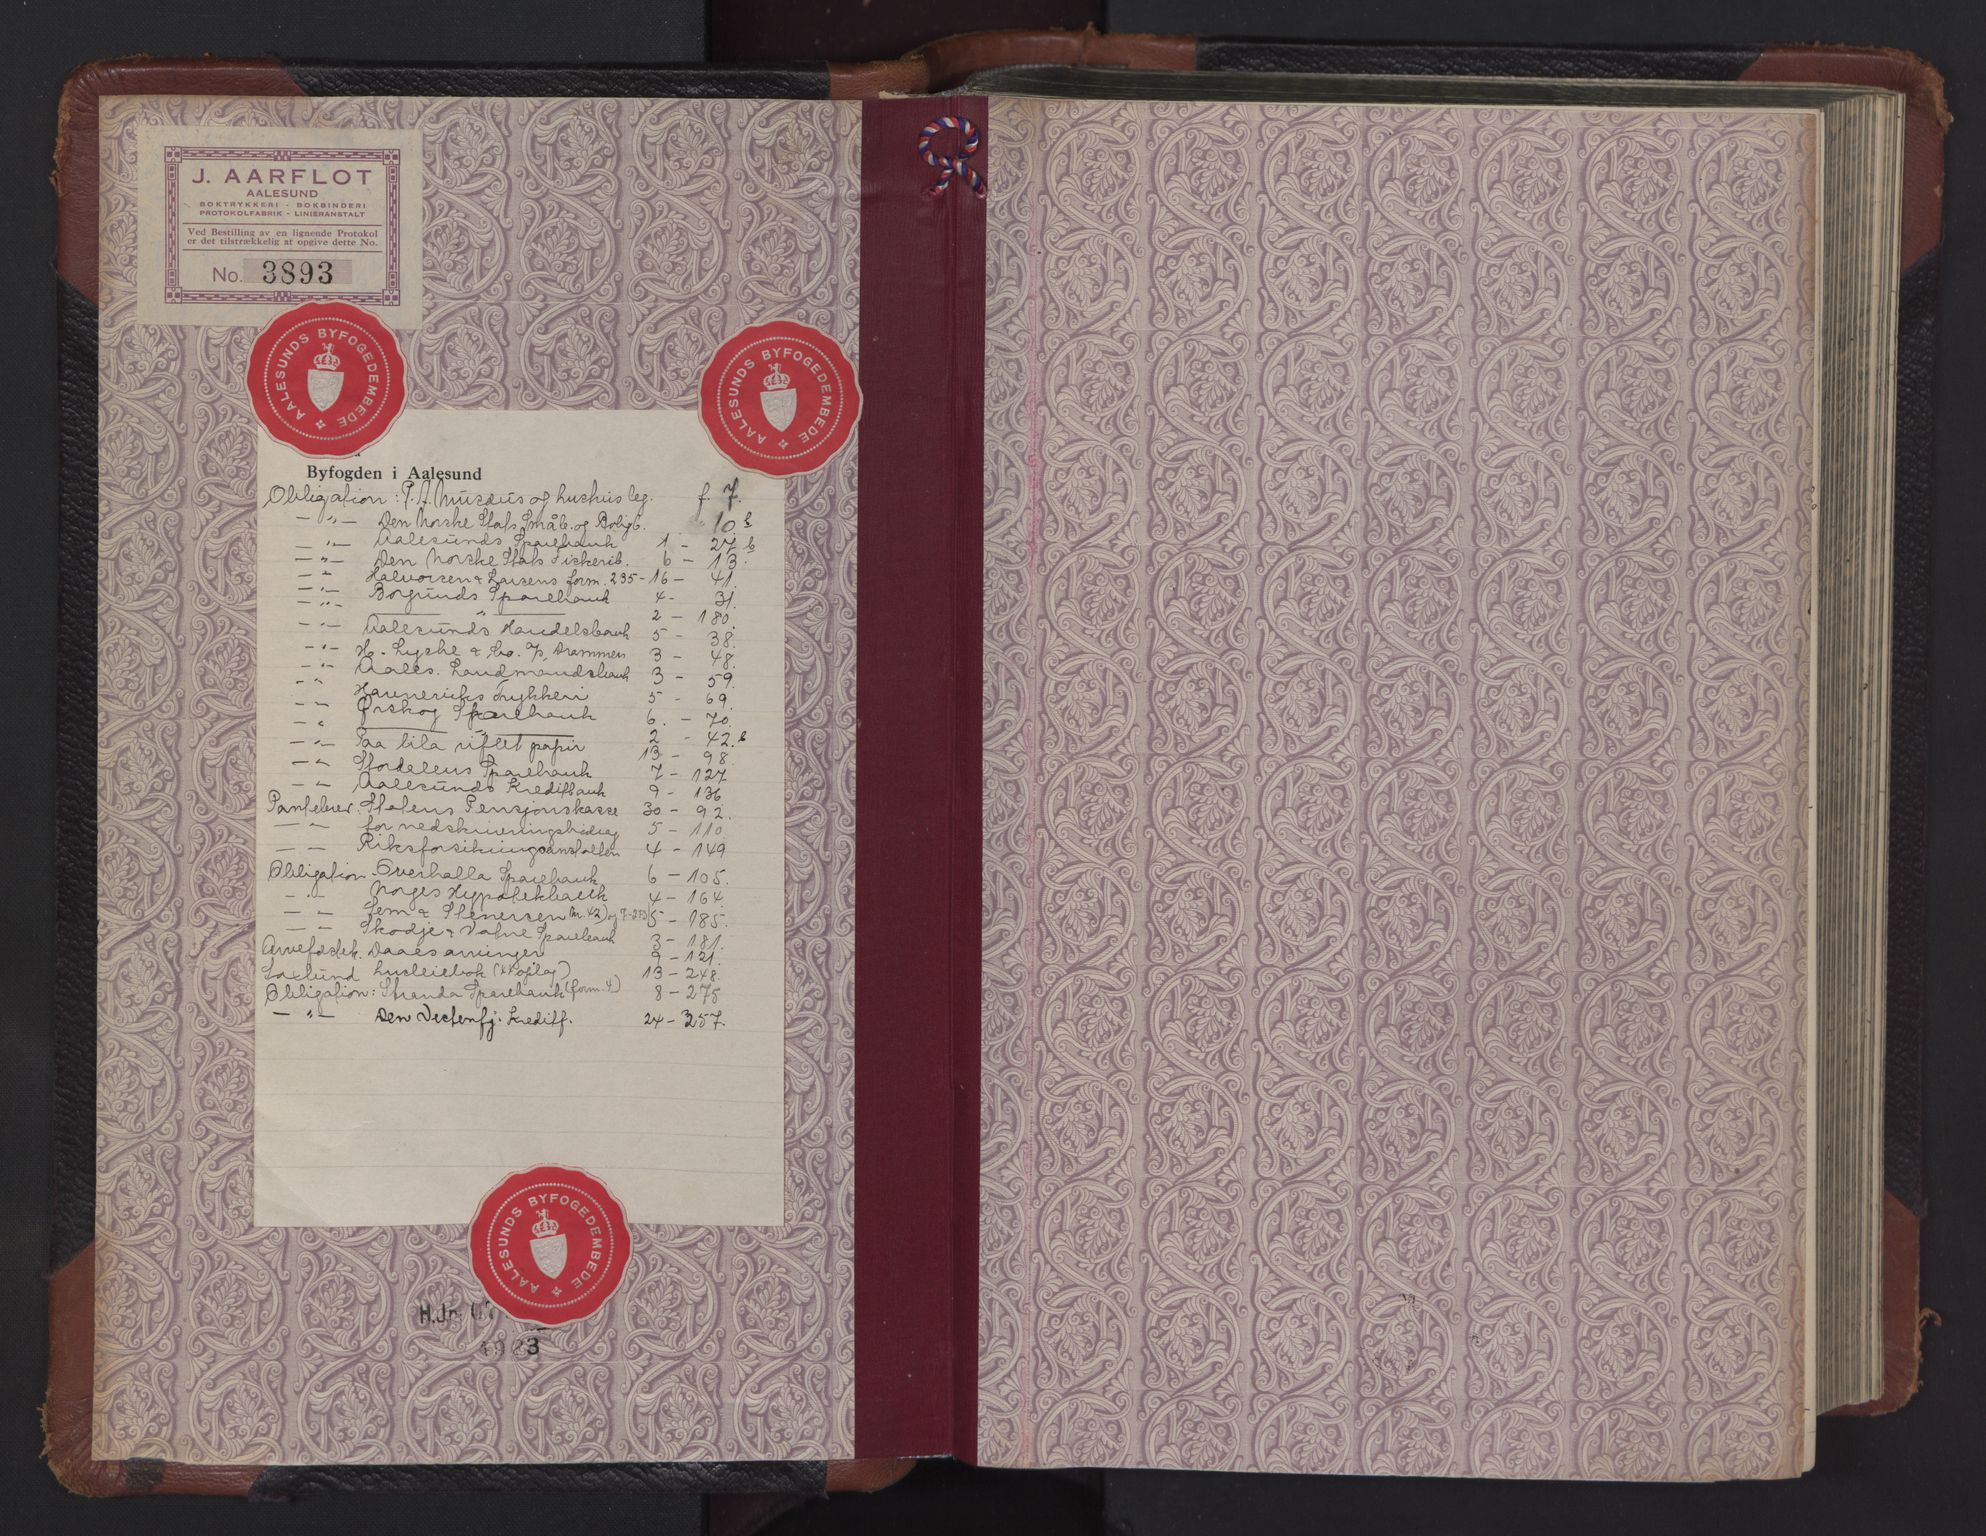 J. AARFLOT
AALESUND
BOKTRYKKERI - BOKBINDERI
PROTOKOLFABRIK - LINIERANSTALT
Ved Bestilling av en lignende Protokol
er det tilstrækkelig at opgive dette No.
No. 3893
AALESUNDS BYFOGEDEMBEDE
AALESUNDS BYFOGEDEMBEDE
Byfogden i Aalesund
Obligation: P. A. og f. 7.
- " - Den Norske Stats Småb. og Boligb. 10 b
- " - Aalesunds Sparebank 1 - 27 b
- " - Den Norske Stats Fiskerib. 6 - 13.
- " - Halvorsen & Larsens form. 235 - 16 - 41.
- " - Borgunds Sparebank 4 - 31.
" 2 - 180.
- " - Aalesunds Handelsbank 5 - 38.
- " - H. Lyche & Co. Drammen 3 - 48.
- " - Aales. Landmandsbank 3 - 59.
- " - trykkeri 5 - 69.
- " - Ørskog Sparebank 6. - 70.
" 2 - 42. b
- " - Paa lila riflet papir 13 - 98.
- " - Stordalens Sparebank 7 - 127
- " - Aalesunds Kreditbank 9 - 136
Pantebrev. Statens Pensjonskasse 30 - 92.
- " - for nedskrivningsbidrag 5 - 110.
- " - Riksforsikringsanstalten 4 - 149
Obligation. Overhalla Sparebank 6 - 105.
- " - Norges Hypotekbank 4 - 164.
- " - Sem & Stenersen (nr. 42) og 5 - 185.
- " - Skodje & Vatne Sparebank 3 - 181.
9 - 121.
husleiebok 13 - 248.
Obligation: Stranda Sparebank (form. 4) 8 - 275
- " - Den Vestenfj. Kreditf. 24 - 257.
AALESUNDS BYFOGEDEMBEDE
H.Jr.